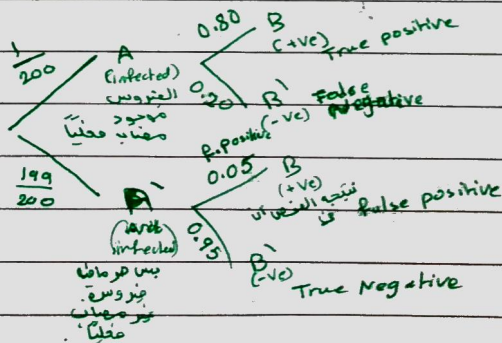 1/200
A
(infected)
الفيروس
موجود
مصاب فعلياً
0.80
B
(+ve) True positive
0.20
B' False
(-ve) Negative
199/200
A'
(not
infected)
بس هو مافيه
فيروس
غير مصاب
فعلياً
F. positive
0.05
B
(+ve) False positive
نتيجة الفحص أن
0.95
B'
(-ve) True Negative